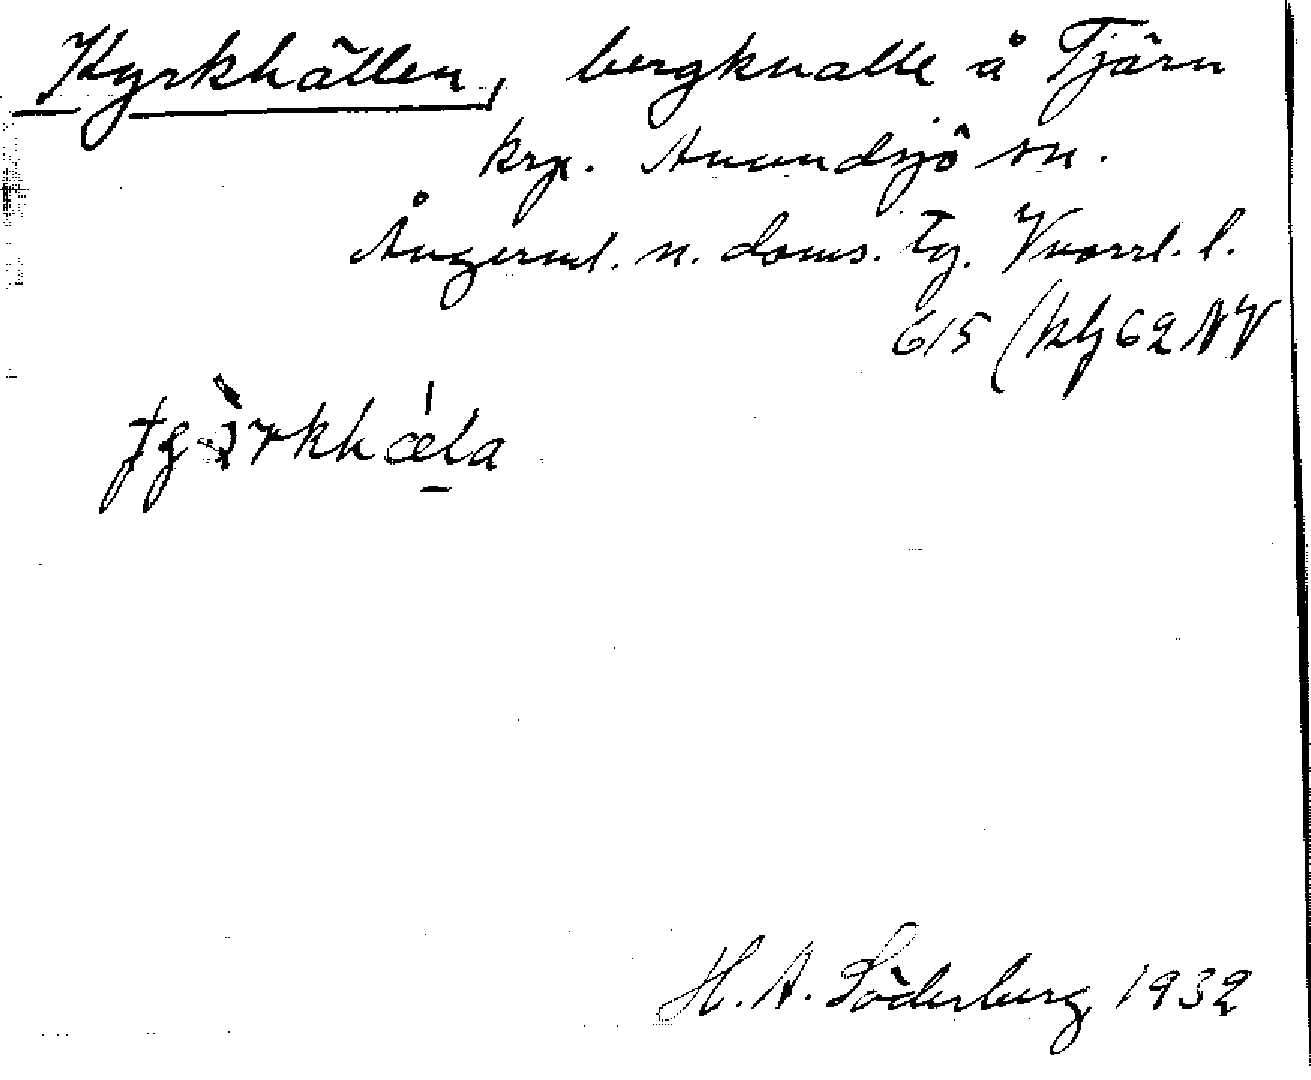 Kyrkhällen, bergknalle å Tjärn
krp. Anundsjö sn.
Ångerml. n. doms. tg. Vnorrl. l.
615 (kbl 62 NV
H. A. Söderberg, 1932